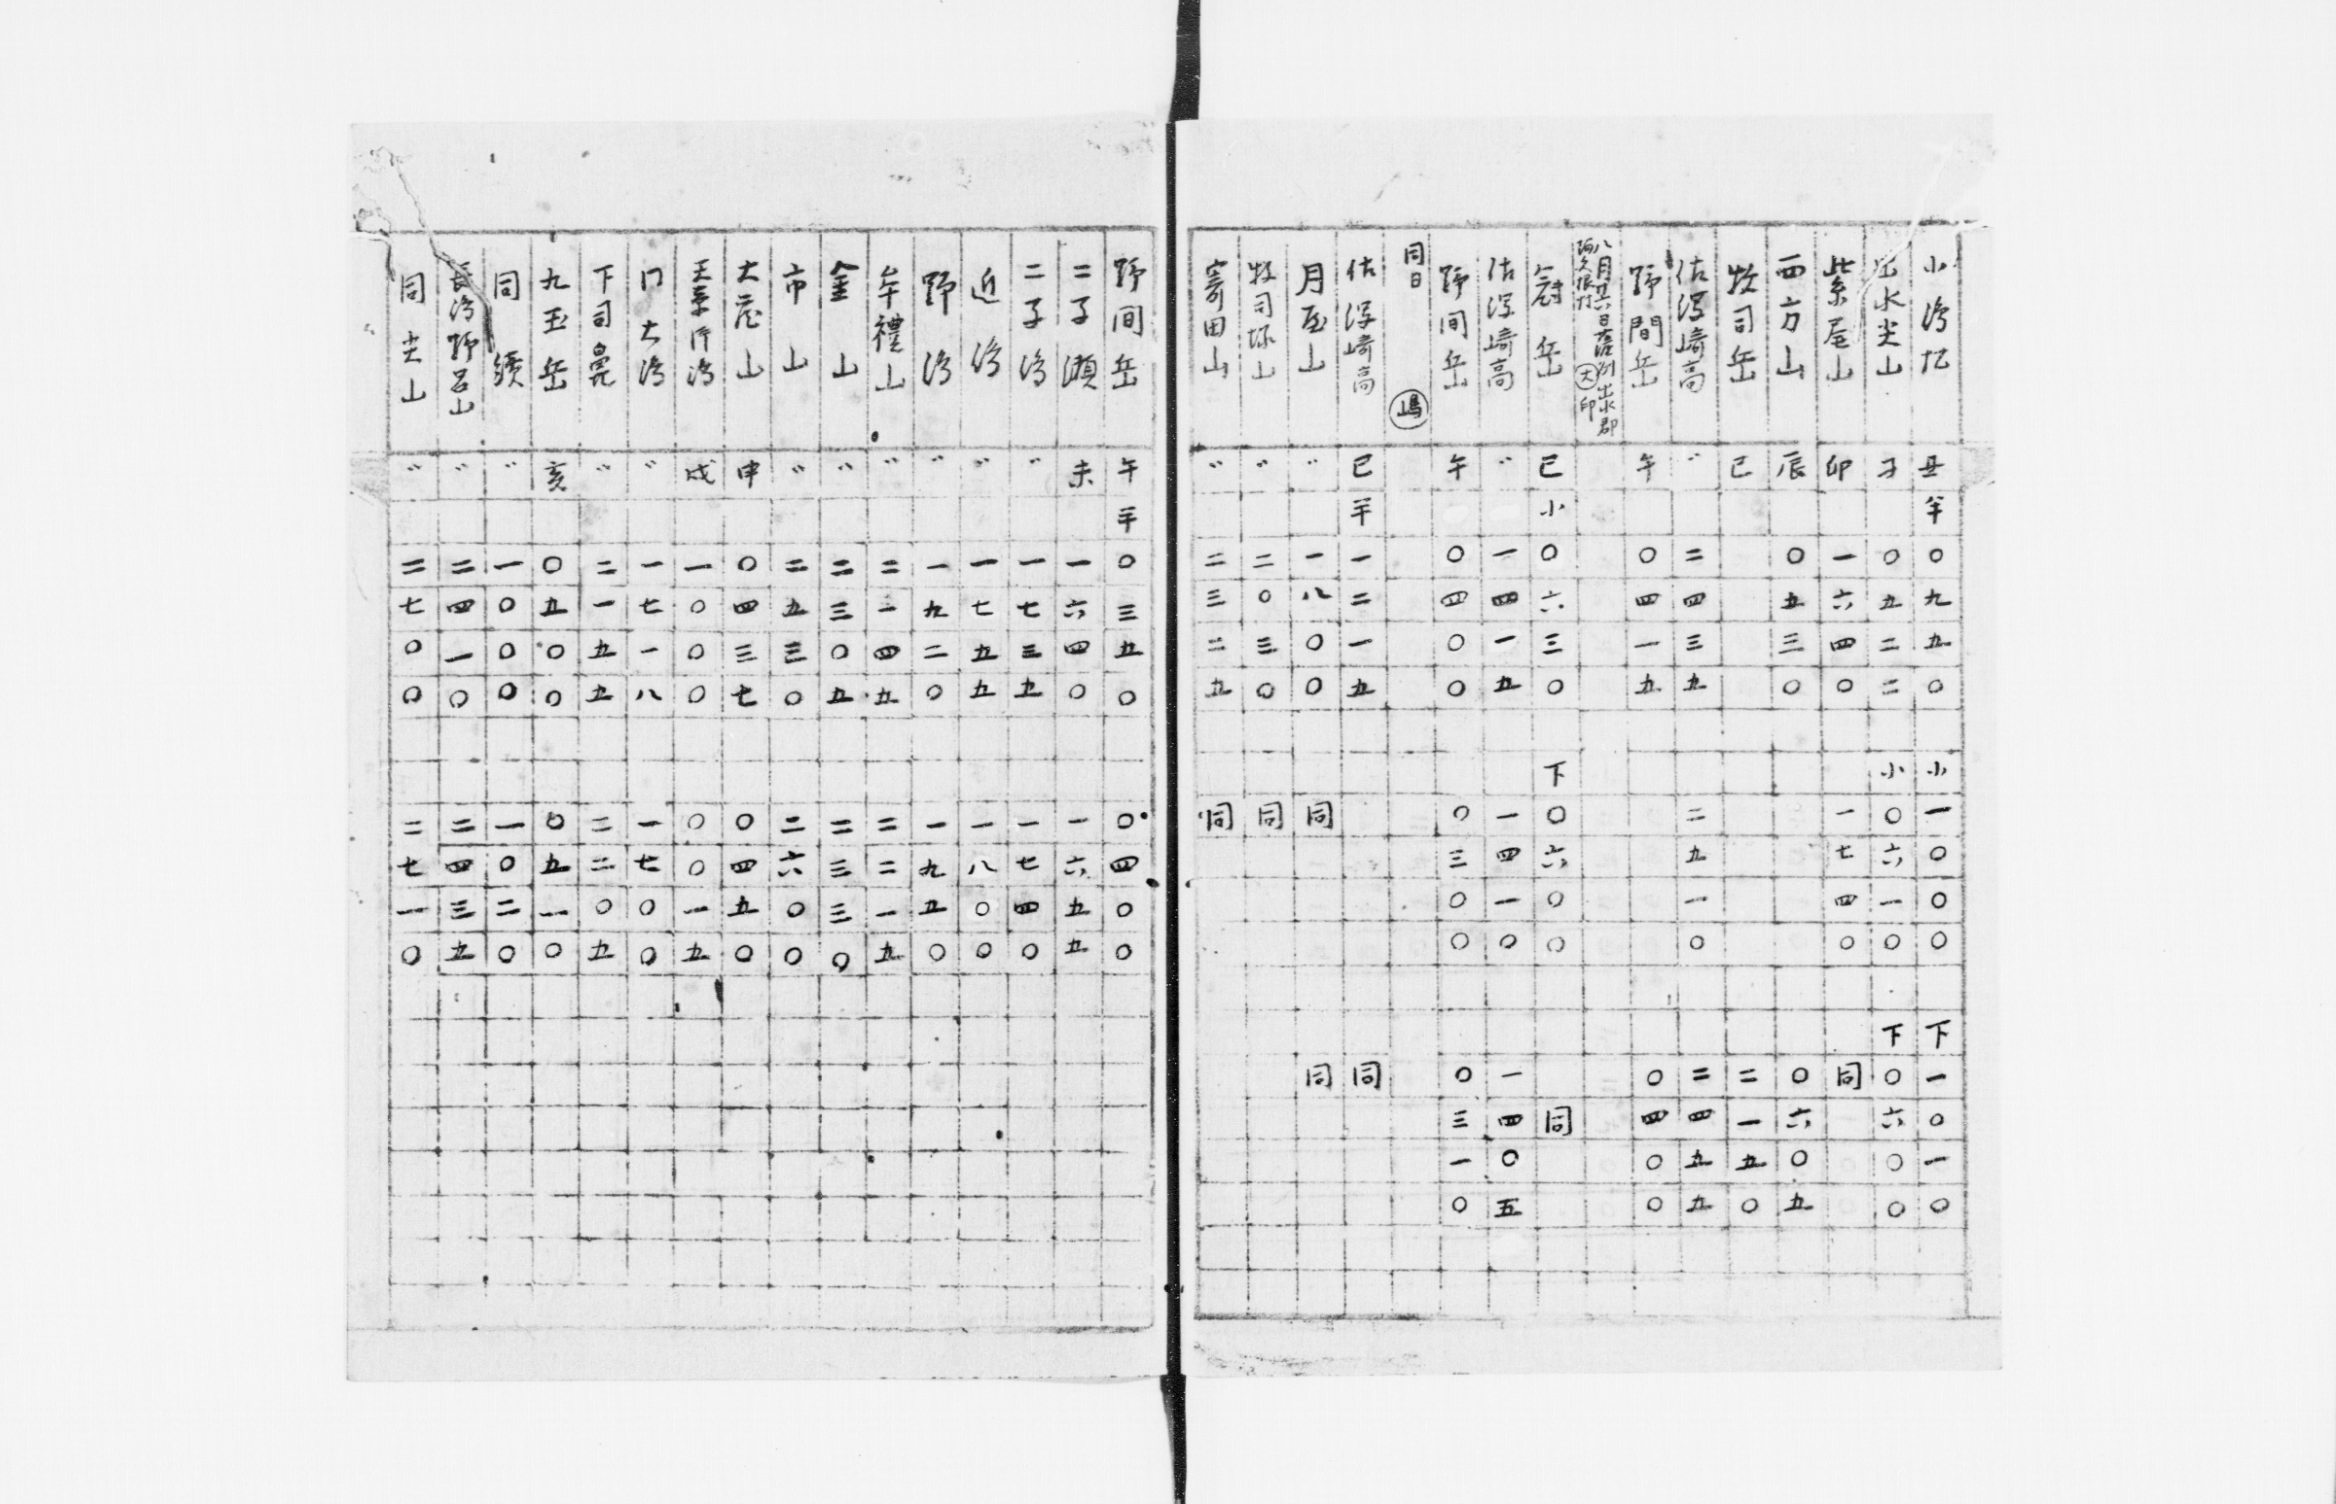 小 丑 半 〇九五〇 小 一〇〇〇 下 一〇一〇
出水尖山 子 〇五二二 小 〇六一〇 下 〇六〇〇
紫尾山 卯 一六四〇 一七四〇 同
西方山 辰 〇五三〇 〇六〇五
牧司岳 巳 二一五〇
佐 崎高 〃 二四三五 二五一〇 二四五五
野間岳 午 〇四一五 〇四〇〇
八月廿六日 出水郡
阿久根村 大 印
冠岳 巳 小 〇六三〇 下 〇六〇〇 同
佐 崎高 〃 一四一五 一四一〇 一四〇五
野间岳 午 〇四〇〇 〇三〇〇 〇三一〇
同日 嶋
佐 崎高 巳 半 一二一五 同
月屋山 〃 一八〇〇 同 同
牧司 山 〃 二〇三〇 同
寄田山 〃 二三二五 同
野间岳 午 半 〇三五〇 〇四〇〇
二子瀬 未 一六四〇 一六五五
二子 〃 一七三五 一七四〇
近 〃 一七五五 一八〇〇
野 〃 一九二〇 一九五〇
牟禮山 〃 二一四五 二二一五
金山 〃 二三〇五 二三三〇
市山 〃 二五三〇 二六〇〇
大 山 申 〇四三七 〇四五〇
戌 一〇〇〇 〇〇一五
门大 〃 一七一八 一七〇〇
下司 〃 二一五五 二二〇五
九玉岳 亥 〇五〇〇 〇五一〇
同 續 〃 一〇〇〇 一〇二〇
長 野呂山 〃 二四一〇 二四三五
同 尖山 〃 二七〇〇 二七一〇